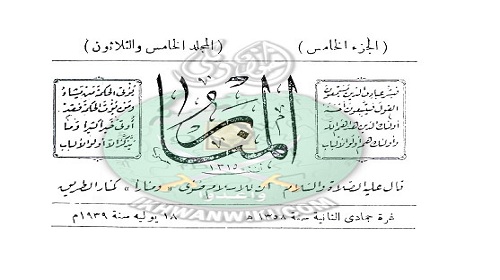 ( الجزء الخامس ) ( المجلد الخامس والثلاثون )
فبشر عبادي الذين يستمعون
القول فيتبعون أحسنه
أولئك الذين هداهم الله
وأولئك هم أولو الألباب
المنار
١٣١٥
يؤتي الحكمة من يشاء
ومن يؤت الحكمة فقد
أوتي خيرا كثيرا وما
يذكر إلا أولو الألباب
قال عليه الصلاة والسلام ان للاسلام صوى « ومنارا » كمنار الطريق
غرة جمادى الثانية سنة ١٣٥٨ هـ ١٨ يوليه سنة ١٩٣٩ م
IKHWANWIKI.COM